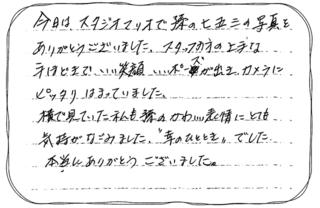 今日は スタジオマリオで 孫の七五三の写真を
ありがとうございました。スタッフの方の上手な
手ほどきで いい笑顔 いいポーズが出き カメラに
ピッタリ はまっていました。
横で見ていた私も 孫の かわいい表情に とても
気持がなごみました。"幸のひととき" でした
本当に ありがとう ございました。